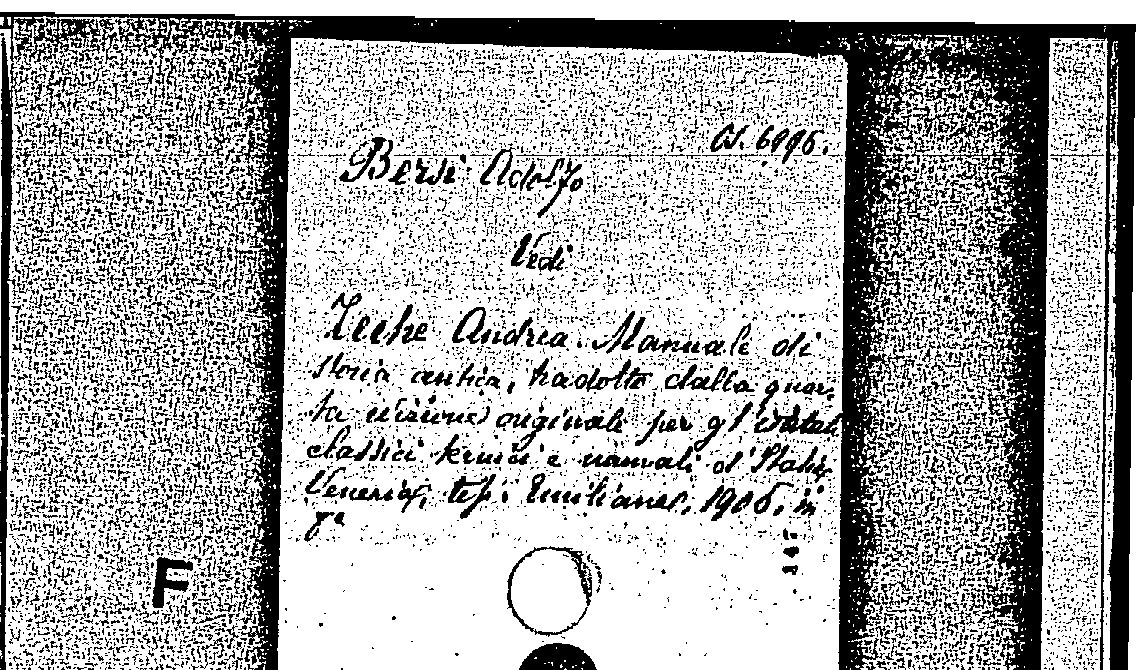 CS. 6996.
Bersi Adolfo
Vedi
Zeehe Andrea. Manuale di
storia antica, tradotto dalla quar-
ta edizione originale per gl'istituti
classici tecnici e normali d'Italia,
Venezia, tip. Emiliana, 1905, in
8°
14:
F